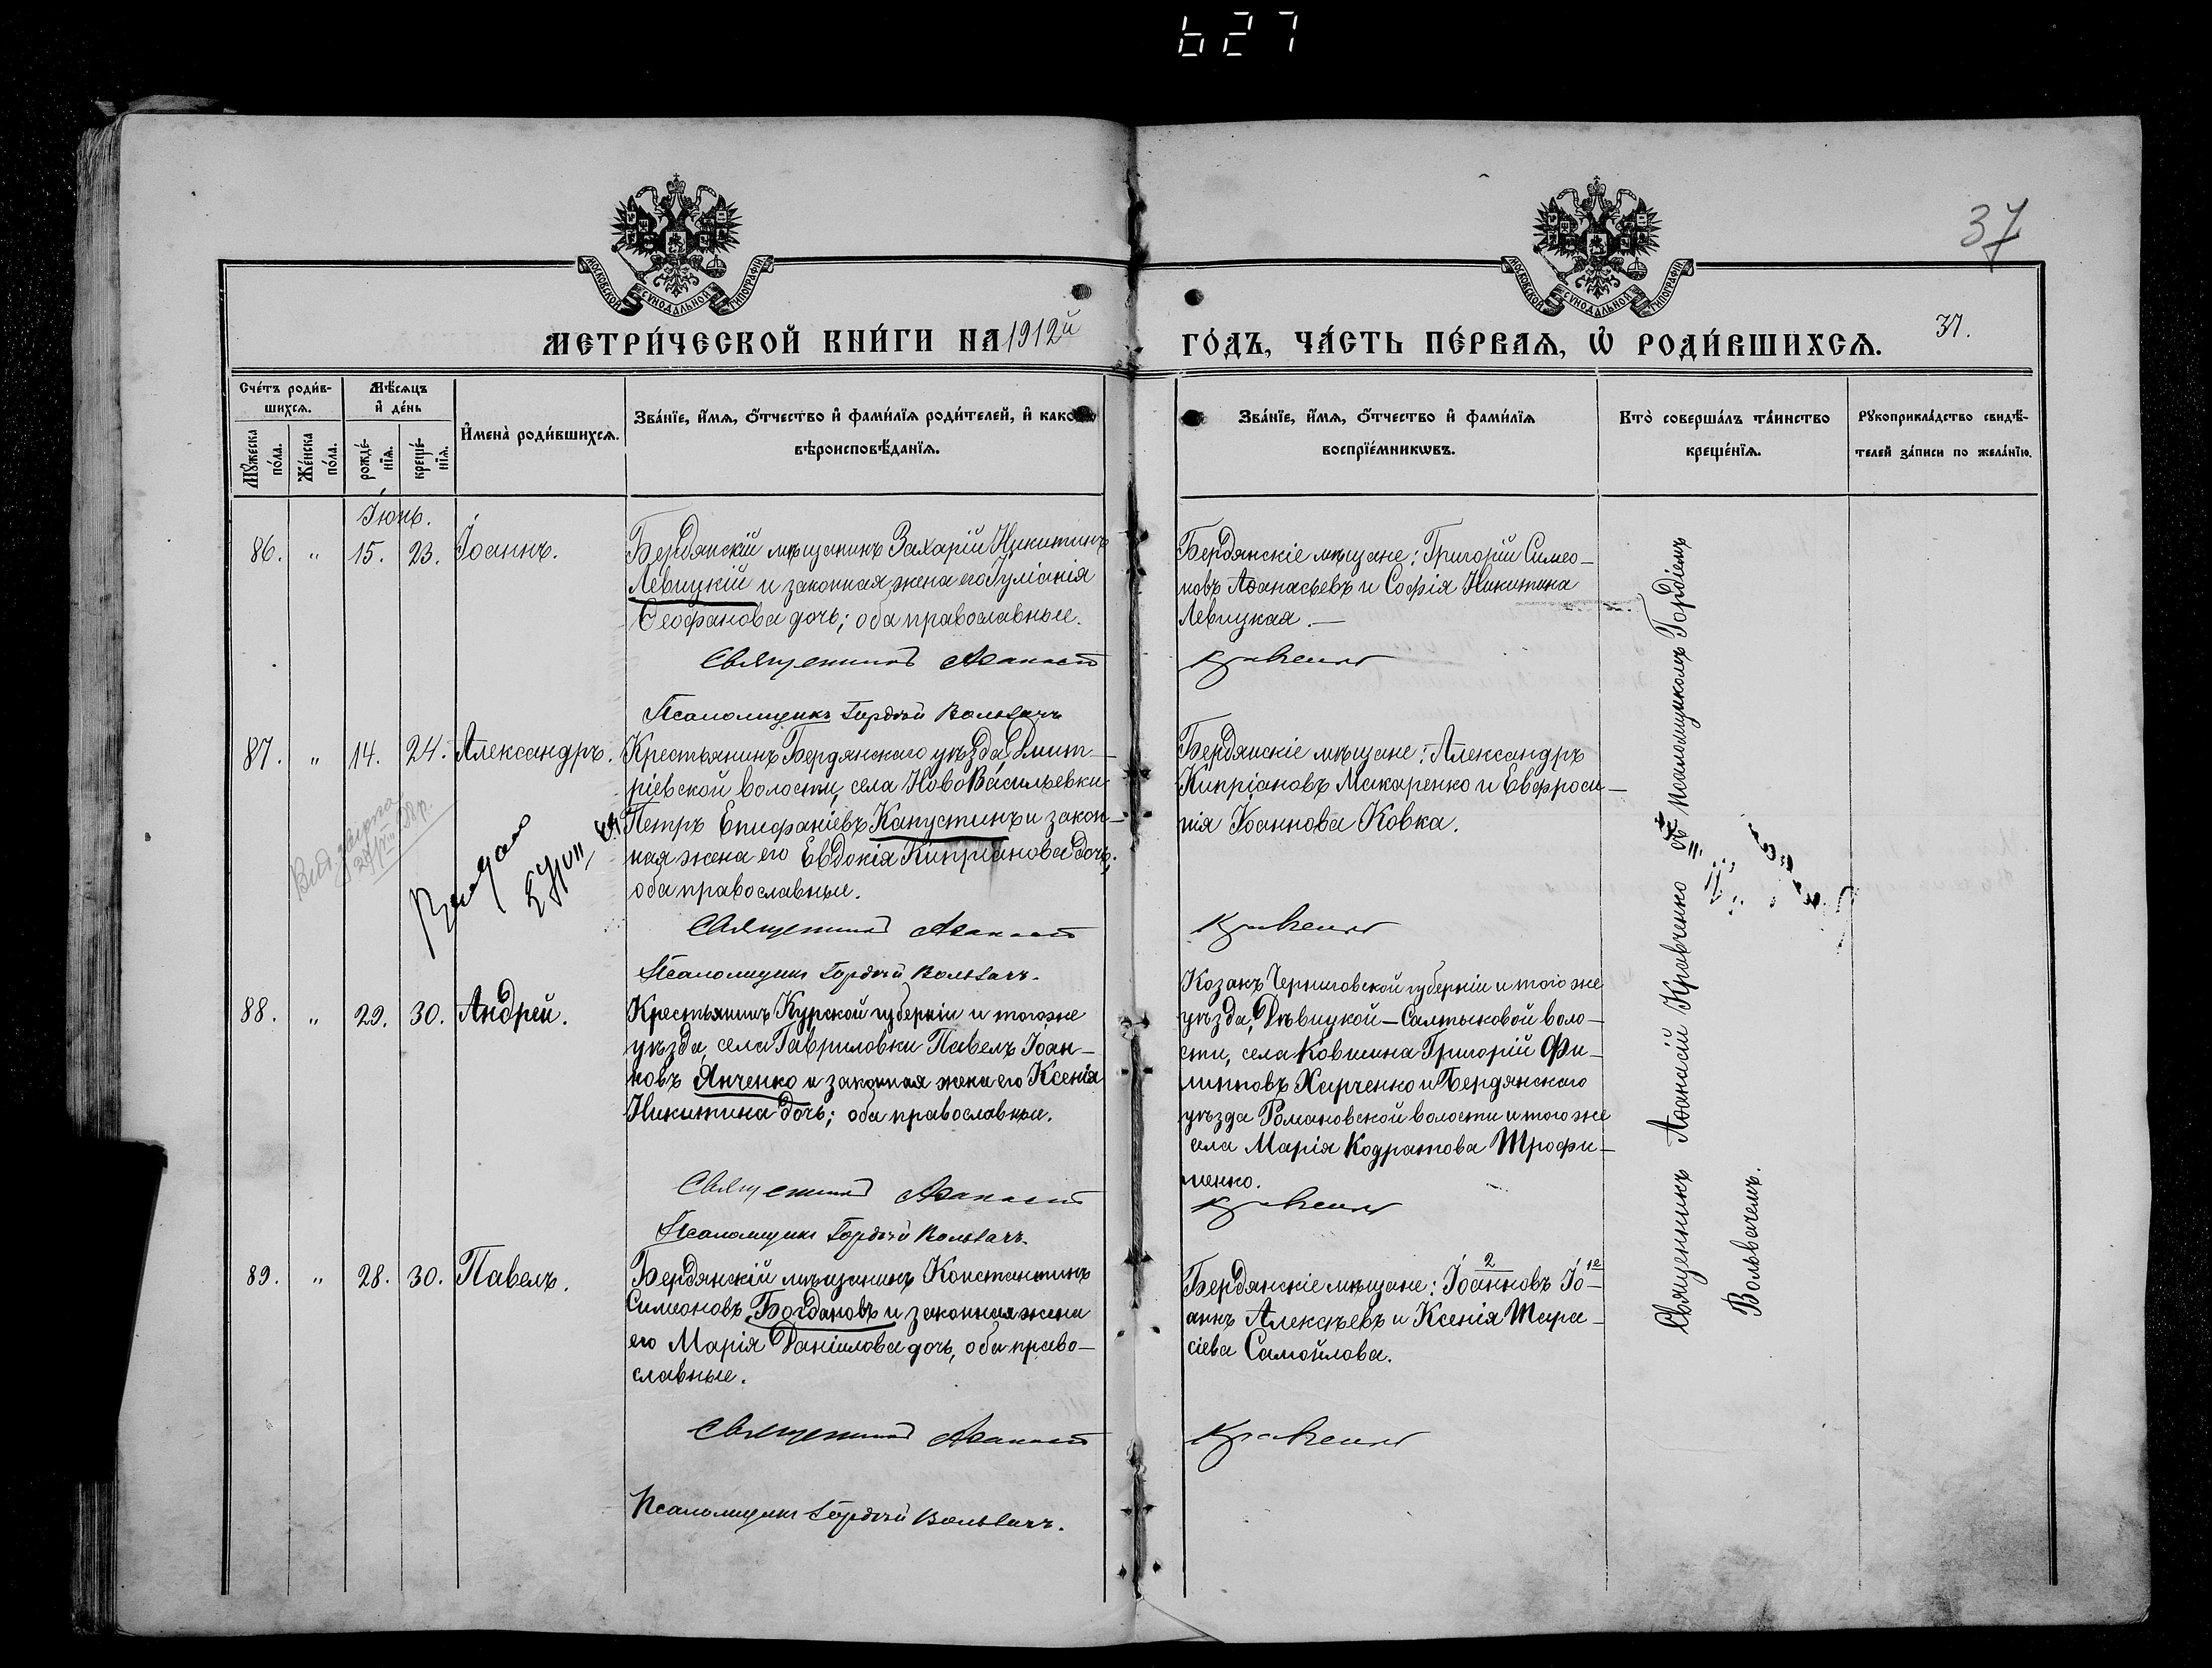 627
37
МОСКОВСКОЙ СѴНОДАЛЬНОЙ ТИПОГРАФІИ
МОСКОВСКОЙ СѴНОДАЛЬНОЙ ТИПОГРАФІИ
МЕТРИ́ЧЕСКОЙ КНИ́ГИ НА 1912й
ГО́ДЪ, ЧА́СТЬ ПЕ́РВАѦ, Ѡ҆ РОДИ́ВШИХСѦ. 37.
Сче́тъ роди́в-
шихсѧ.
Мꙋ́жеска
по́ла.
Же́нска
по́ла.
Мѣ́сѧцъ
и҆ де́нь
рожде́-
нїѧ.
креще́-
нїѧ.
И҆мена̀ роди́вшихсѧ.
Зва́нїе, и҆́мѧ, ѻ҆́тчество и҆ фами́лїѧ роди́телей, и҆ како́гѡ
вѣроисповѣ́данїѧ.
Зва́нїе, и҆́мѧ, ѻ҆́тчество и҆ фами́лїѧ
воспрїе́мникѡвъ.
Кто̀ соверша́лъ та́инство
креще́нїѧ.
Рꙋкоприкла́дство свидѣ́-
телей за́писи по жела́нїю.
Іюнь.
86. " 15. 23. Іоаннъ.
Бердянскій мѣщанинъ Захарій Никитинъ
Левицкій и законная жена его Іуліанія
Ѳеофанова дочь; оба православные.
Священникъ Аѳанасій
Псаломщикъ Гордій Вольвачъ
Бердянскіе мѣщане: Григорій Симео-
новъ Аѳанасьевъ и Софія Никитина
Левицкая.—
Кравченко
87. " 14. 24. Александръ.
Крестьянинъ Бердянскаго уѣзда, Дмит-
ріевской волости, села НовоВасильевки
Петръ Епифаніевъ Капустинъ и закон-
ная жена его Евдокія Кипріанова дочь;
оба православные.
Священникъ Аѳанасій
Псаломщикъ Гордій Вольвачъ.
Бердянскіе мѣщане: Александръ
Кипріановъ Макаренко и Евфроси-
нія Іоаннова Ковка.
Кравченко
Выдано
88. " 29. 30. Андрей.
Крестьянинъ Курской губерніи и того же
уѣзда, села Гавриловки Павелъ Іоан-
новъ Янченко и законная жена его Ксенія
Никитина дочь; оба православные.
Священникъ Аѳанасій
Псаломщикъ Гордій Вольвачъ.
Козакъ Черниговской губерніи и того же
уѣзда, Дѣвицкой-Салтыковой воло-
сти, села Ковшина Григорій Фи-
липповъ Харченко и Бердянскаго
уѣзда Романовской волости и того же
села Марія Кодратова Трофи-
менко.
Кравченко
89. " 28. 30. Павелъ.
Бердянскій мѣщанинъ Константинъ
Симеоновъ Богдановъ и законная жена
его Марія Даніилова дочь, оба право-
славные.
Священникъ Аѳанасій
Псаломщикъ Гордій Вольвачъ.
2 1е
Бердянскіе мѣщане: Іоанновъ Іо-
аннъ Алексѣевъ и Ксенія Тара-
сіева Самойлова.
Кравченко
Священникъ Аѳанасій Кравченко съ псаломщикомъ Гордіемъ
Вольвачемъ.